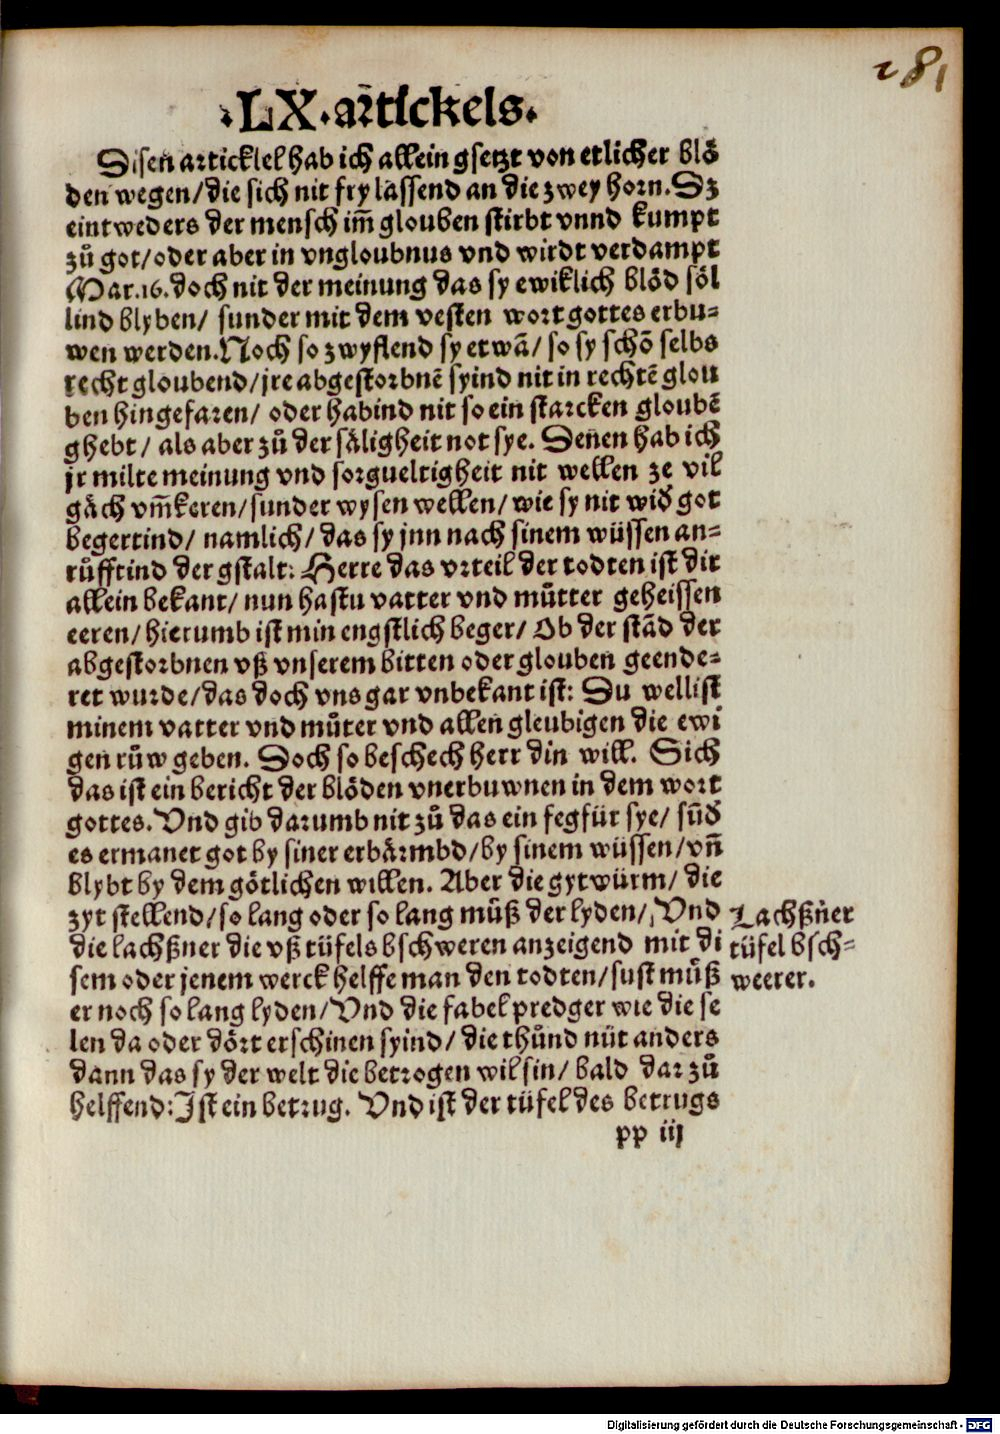 281
·LX·artickels·
Disen articklel hab ich allein gsetzt von etlicher blö
den wegen/die sich nit fry lassend an die zwey horn.Dz
eintweders der mensch im̃ glouben stirbt vnnd kumpt
zů got/oder aber in vngloubnus vnd wirdt verdampt
Mar.16.doch nit der meinung das sy ewiklich blöd söl
lind blyben/ sunder mit dem vesten wort gottes erbu⸗
wen werden.Noch so zwyflend sy etwā/ so sy schō selbs
recht gloubend/jre abgestorbnē syind nit in rechtē glou
ben hingefaren/ oder habind nit so ein starcken gloubē
ghebt/ als aber zů der säligheit not sye. Denen hab ich
jr milte meinung vnd sorgueltigheit nit wellen ze vil
gäch vm̃keren/sunder wysen wellen/ wie sy nit wid̕ got
begertind/ namlich/ das sy jnn nach sinem wüssen an⸗
růfftind der gstalt: Herre das vrteil der todten ist dir
allein bekant/ nun hastu vatter vnd můtter geheissen
eeren/ hierumb ist min engstlich beger/ Ob der stād der
abgestorbnen vß vnserem bitten oder glouben geende⸗
ret wurde/das doch vns gar vnbekant ist: Du wellist
minem vatter vnd můter vnd allen gleubigen die ewi
gen růw geben. Doch so beschech herr din will. Sich
das ist ein bericht der blöden vnerbuwnen in dem wort
gottes.Vnd gib darumb nit zů das ein fegfür sye/ sūd̕
es ermanet got by siner erbärmbd/by sinem wüssen/vn̄
blybt by dem götlichen willen. Aber die gytwürm/ die
zyt stellend/so lang oder so lang můß der lyden/ Vnd
die lachßner die vß tüfels bschweren anzeigend mit di
sem oder jenem werck helffe man den todten/sust můß
er noch so lang lyden/Vnd die fabel predger wie die se
len da oder dört erschinen syind/ die thůnd nüt anders
dann das sy der welt die betrogen wil sin/ bald dar zů
helffend:Ist ein betrug. Vnd ist der tüfel des betrugs
Lachßner
tüfel bsch⸗
weerer.
pp iij
Digitalisierung gefördert durch die Deutsche Forschungsgemeinschaft - DFG